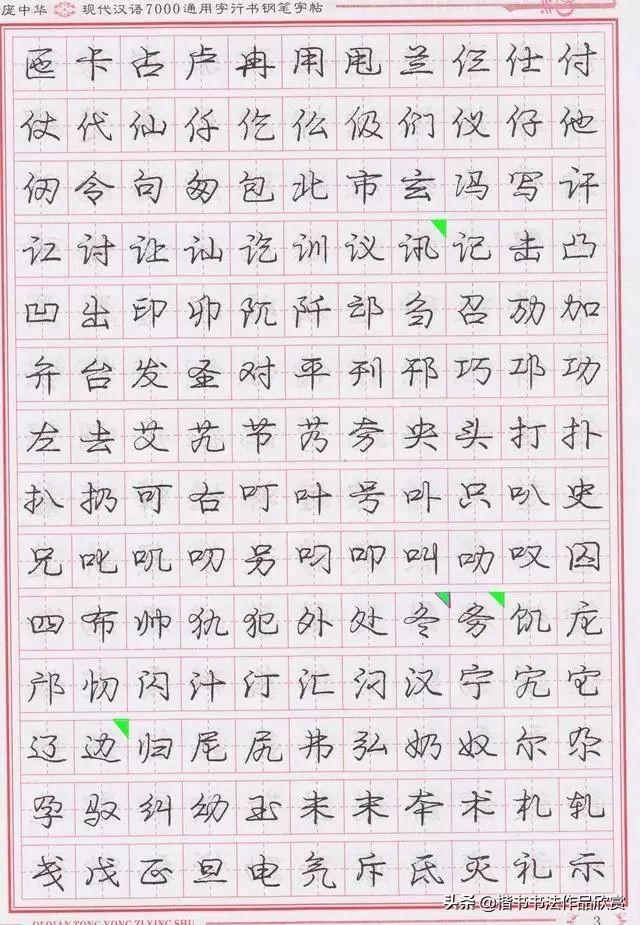 庞中华 现代汉语7000通用字行书钢笔字帖
匝卡占卢冉用甩兰仨仕付
仗代仙仟仡仫伋们仪仔他
仞令句匆包北市玄冯写讦
讧讨让讪讫训议讯记击凸
凹出印卯阢阡邙刍召劢加
弁台发圣对平刊邗巧邛功
左去艾艽节艿夯央头打扑
扒扔可右叮叶号卟只叭史
兄叱叽叨另叼叩叫叻叹囚
四布帅犰犯外处冬务饥庀
邝忉闪汁汀汇汈汉宁宄它
辽边归尾尻弗弘奶奴尔尕
孕驭纠幼玉未末本术札轧
戋戊正旦电气斥氐灭礼示
头条@楷书书法作品欣赏
QI QIAN TONG YONG ZI XING SHU
3